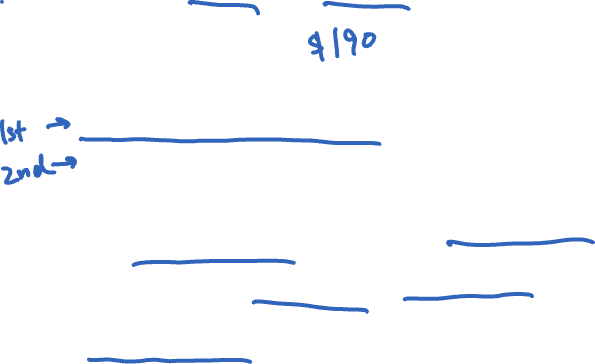 $190
1st →
2nd →